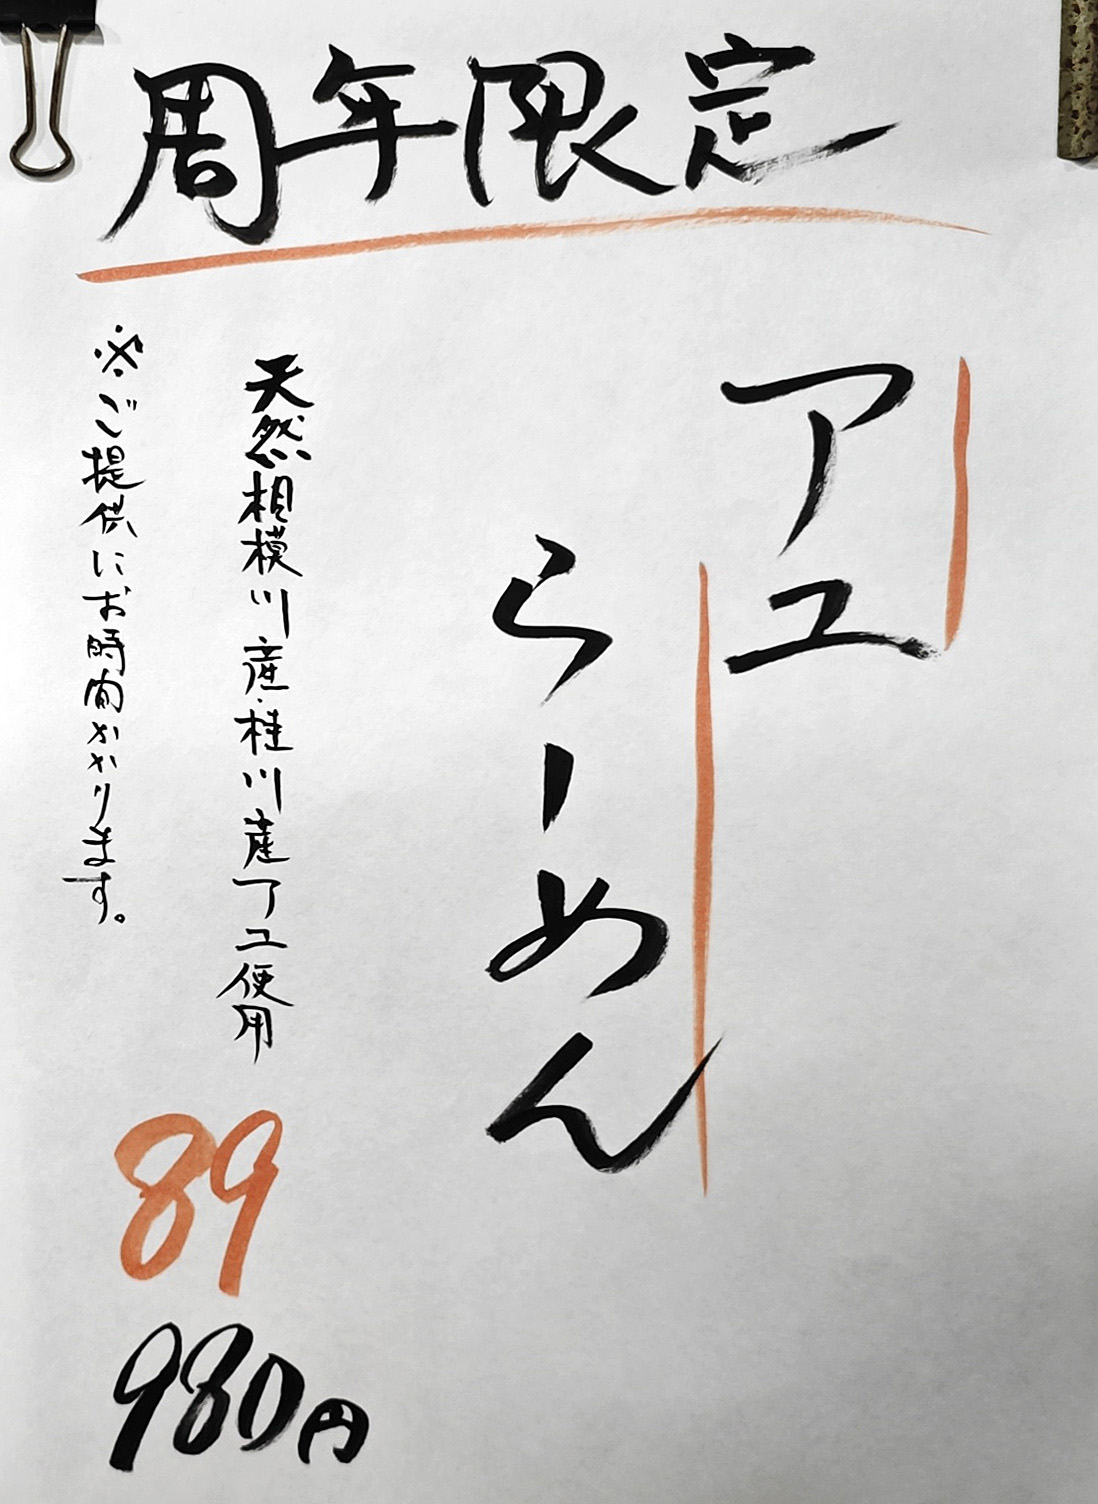 周年限定
アユ
らーめん
天然相模川産・桂川産アユ使用
※ご提供にお時間かかります。
89
980円